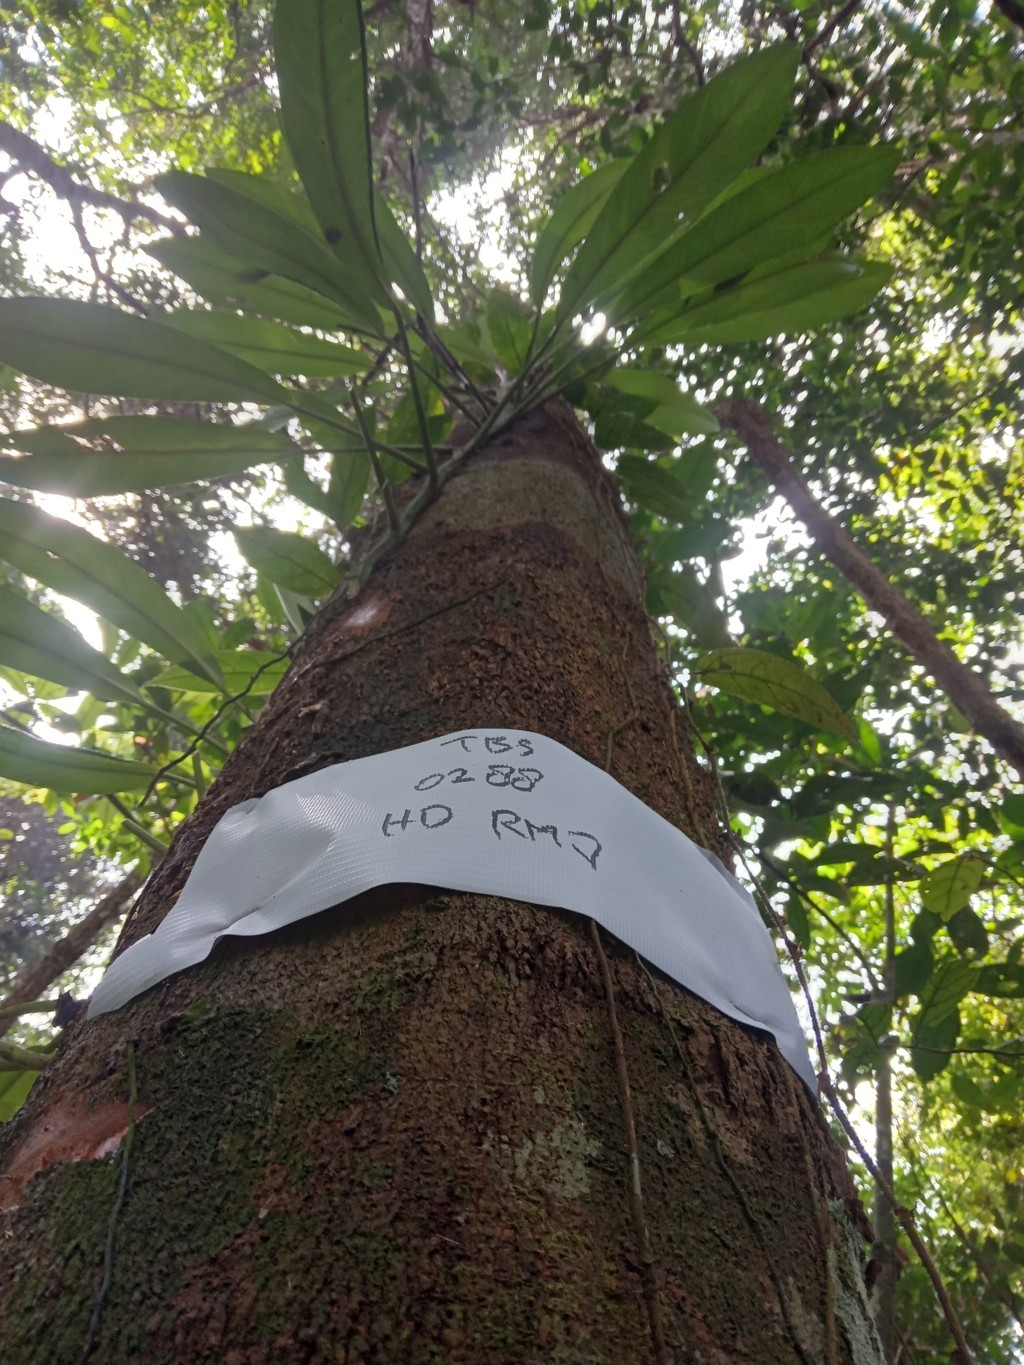 TBS
0288
HD RMJ